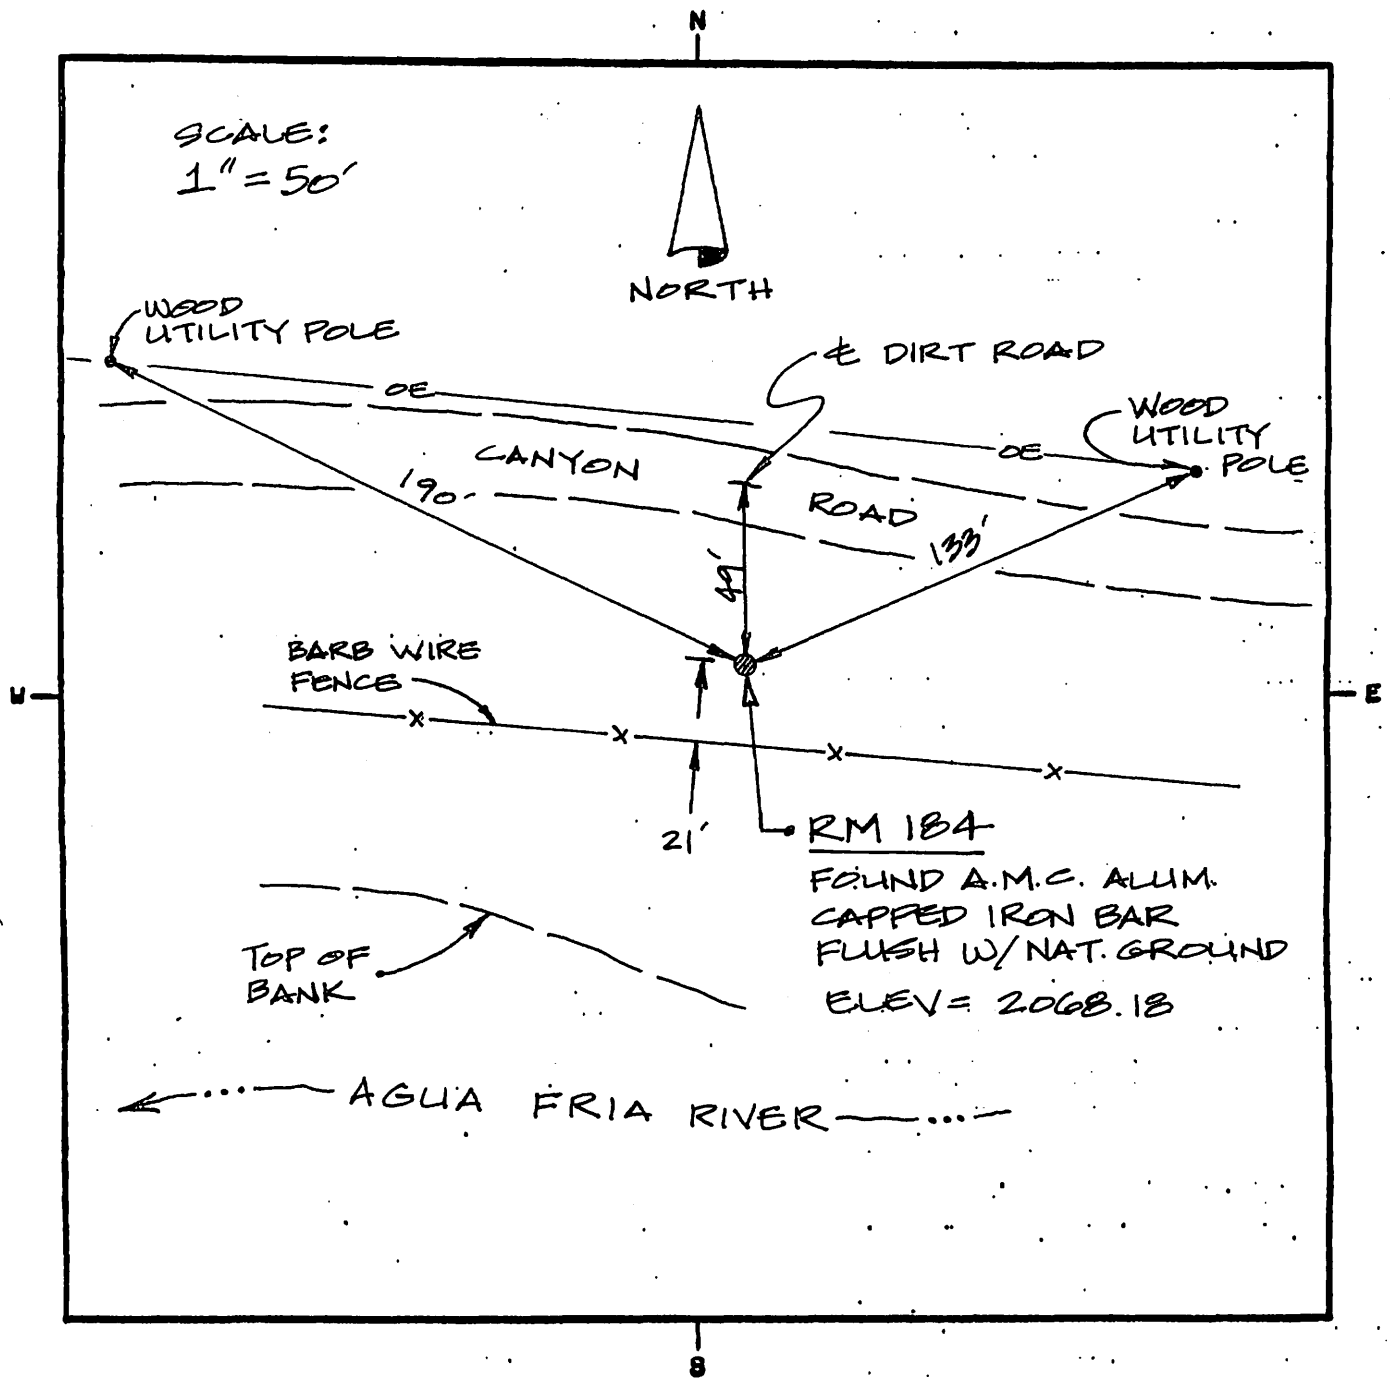 N
SCALE:
1" = 50'
NORTH
WOOD
UTILITY POLE
℄ DIRT ROAD
OE
WOOD
UTILITY
POLE
OE
CANYON
ROAD
190'
133'
49'
BARB WIRE
FENCE
W
E
21'
RM 184
FOUND A.M.C. ALUM.
CAPPED IRON BAR
FLUSH W/ NAT. GROUND
ELEV = 2068.18
TOP OF
BANK
AGUA FRIA RIVER
S